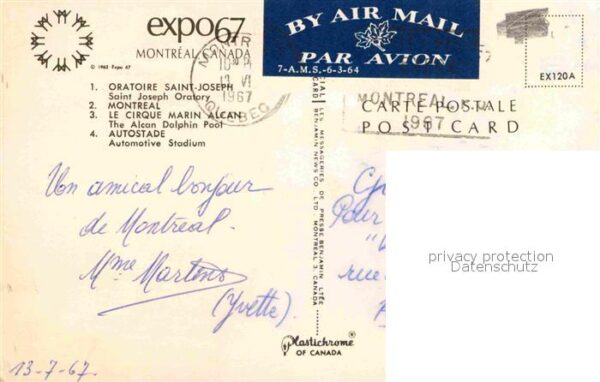 expo67
MONTRÉAL, CANADA
© 1963 Expo 67
1. ORATOIRE SAINT-JOSEPH
Saint Joseph Oratory
2. MONTREAL
3. LE CIRQUE MARIN ALCAN
The Alcan Dolphin Pool
4. AUTOSTADE
Automotive Stadium
BY AIR MAIL
PAR AVION
7-A.M.S.-6-3-64
VI
1967
QUEBEC
EX120A
MONTREAL
1967
CARTE POSTALE
POST CARD
Un amical bonjour
de Montréal.
Mme Martens
(Yvette).
13-7-67.
Pour
rue
LES MESSAGERIES DE PRESSE BENJAMIN LTÉE
BENJAMIN NEWS CO. LTD. MONTREAL 3, CANADA
Plastichrome®
OF CANADA
privacy protection
Datenschutz